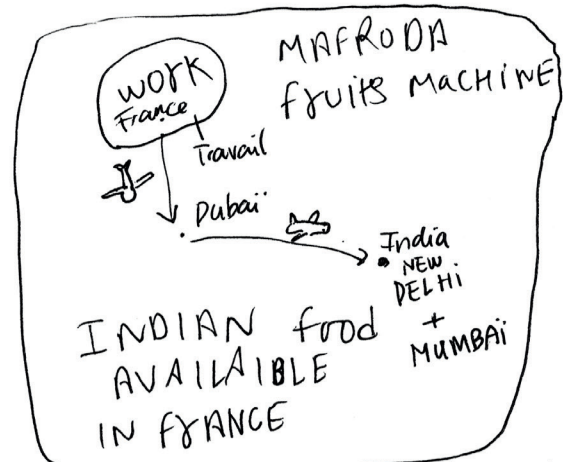 MAFRODA
fruits MACHINE
work
France
Travail
Dubaï
India
NEW
DELHi
+
MUMBAï
INDIAN food
AVAILAIBLE
IN FRANCE